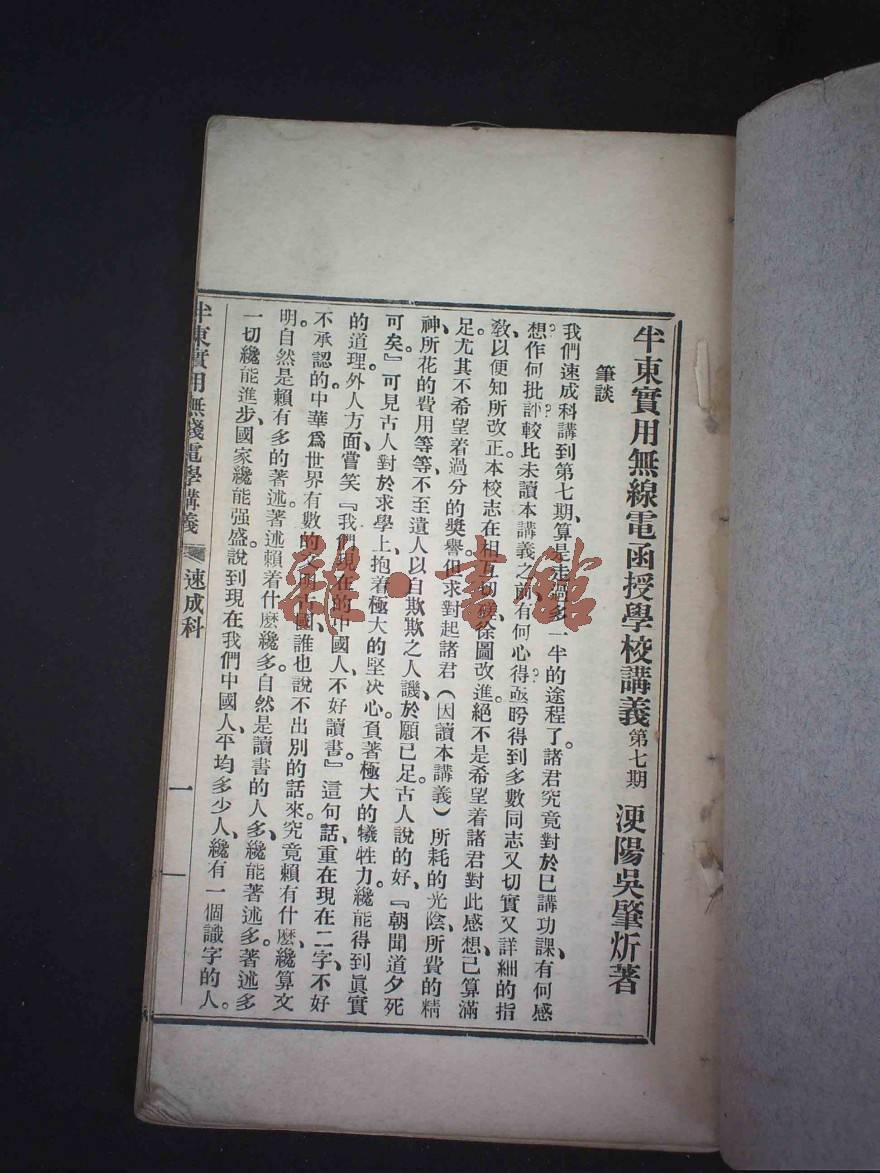 半東實用無線電函授學校講義 第七期 浭陽吳肇炘著
筆談
我們速成科講到第七期、算是走過多一半的途程了。諸君究竟對於已講功課有何感
想?作何批評?較比未讀本講義之前有何心得?亟盼得到多數同志又切實又詳細的指
教、以便知所改正。本校志在相互切磋、徐圖改進、絕不是希望着諸君對此感想、已算滿
足。尤其不希望着過分的獎譽。但求對起諸君(因讀本講義)所耗的光陰、所費的精
神、所花的費用等等、不至遺人以自欺欺人之譏、於願已足。古人說的好、『朝聞道夕死
可矣』可見古人對於求學上、抱着極大的堅决心、負著極大的犧牲力、纔能得到眞實
的道理。外人方面嘗笑『我們現在的中國人、不好讀書』這句話、重在現在二字、不好
不承認的。中華爲世界有數的文明古國、誰也說不出別的話來。究竟賴有什麽、纔算文
明。自然是賴有多的著述。著述賴着什麽纔多、自然是讀書的人多、纔能著述多。著述多、
一切纔能進步、國家纔能强盛。說到現在我們中國人、平均多少人、纔有一個識字的人。
半東實用無綫電學講義 速成科 一
雜·書館